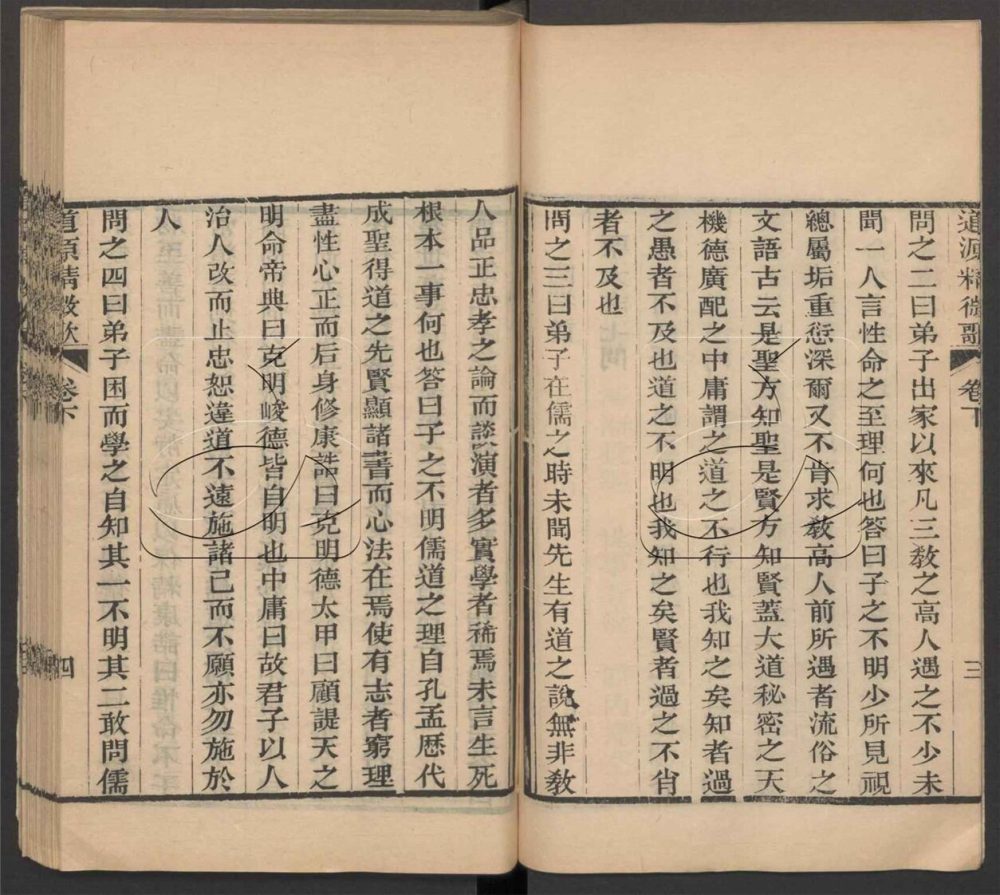 道源精微歌 卷下 三
問之二曰弟子出家以來凡三敎之高人遇之不少未
聞一人言性命之至理何也答曰子之不明少所見視
總屬垢重愆深爾又不肯求敎高人前所遇者流俗之
文語古云是聖方知聖是賢方知賢蓋大道秘密之天
機德廣配之中庸謂之道之不行也我知之矣知者過
之愚者不及也道之不明也我知之矣賢者過之不肖
者不及也
問之三曰弟子在儒之時未聞先生有道之說無非敎
人品正忠孝之論而談演者多實學者稀焉未言生死
根本一事何也答曰子之不明儒道之理自孔孟歷代
成聖得道之先賢顯諸書而心法在焉使有志者窮理
盡性心正而后身修康誥曰克明德太甲曰顧諟天之
明命帝典曰克明峻德皆自明也中庸曰故君子以人
治人改而止忠恕違道不遠施諸己而不願亦勿施於
人
問之四曰弟子困而學之自知其一不明其二敢問儒
道源精微歌 卷下 四